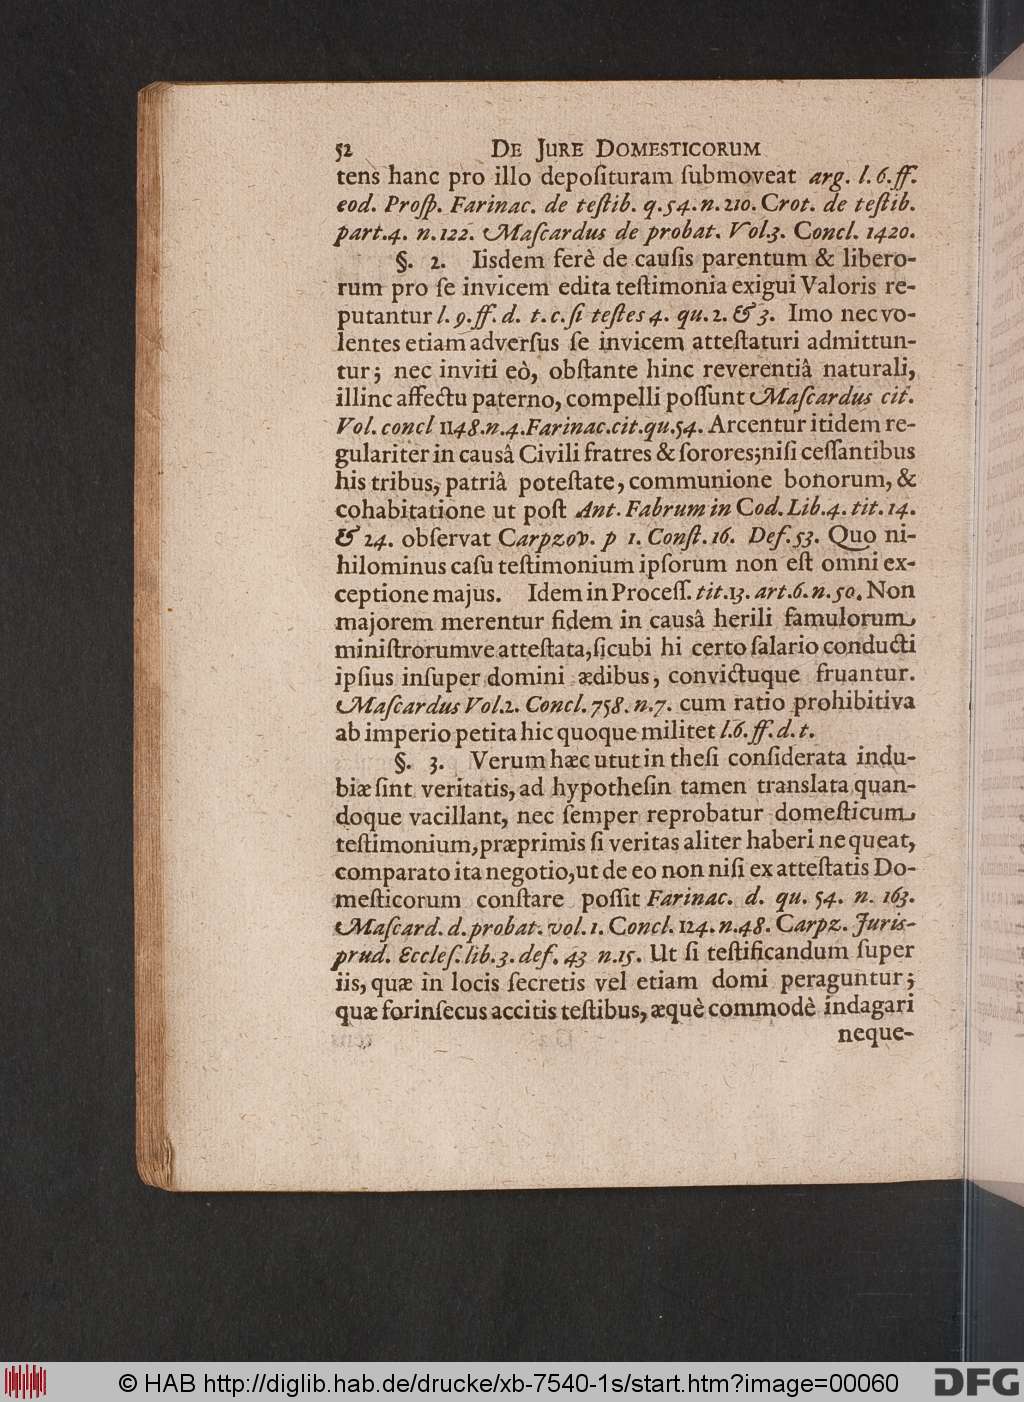 52 De Jure Domesticorum
tens hanc pro illo depoſituram ſubmoveat arg. l. 6. ff.
eod. Proſp. Farinac. de teſtib. q. 54. n. 210. Crot. de teſtib.
part. 4. n. 122. Maſcardus de probat. Vol. 3. Concl. 1420.
§. 2. Iisdem ferè de cauſis parentum & libero-
rum pro ſe invicem edita teſtimonia exigui Valoris re-
putantur l. 9. ff. d. t. c. ſi teſtes 4. qu. 2. & 3. Imo nec vo-
lentes etiam adverſus ſe invicem atteſtaturi admittun-
tur; nec inviti eò, obſtante hinc reverentiâ naturali,
illinc affectu paterno, compelli poſſunt Maſcardus cit.
Vol. concl 1148. n. 4. Farinac. cit. qu. 54. Arcentur itidem re-
gulariter in causâ Civili fratres & ſorores; niſi ceſſantibus
his tribus, patriâ poteſtate, communione bonorum, &
cohabitatione ut poſt Ant. Fabrum in Cod. Lib. 4. tit. 14.
& 24. obſervat Carpzov. p 1. Conſt. 16. Def. 53. Quo ni-
hilominus caſu teſtimonium ipſorum non eſt omni ex-
ceptione majus. Idem in Proceſſ. tit. 13. art. 6. n. 50. Non
majorem merentur fidem in causâ herili famulorum
miniſtrorumve atteſtata, ſicubi hi certo ſalario conducti
ipſius inſuper domini ædibus, convictuque fruantur.
Maſcardus Vol. 2. Concl. 758. n. 7. cum ratio prohibitiva
ab imperio petita hic quoque militet l. 6. ff. d. t.
§. 3. Verum hæc utut in theſi conſiderata indu-
biæ ſint veritatis, ad hypotheſin tamen translata quan-
doque vacillant, nec ſemper reprobatur domeſticum
teſtimonium, præprimis ſi veritas aliter haberi nequeat,
comparato ita negotio, ut de eo non niſi ex atteſtatis Do-
meſticorum conſtare poſſit Farinac. d. qu. 54. n. 163.
Maſcard. d. probat. vol. 1. Concl. 124. n. 48. Carpz. Juris-
prud. Eccleſ. lib. 3. def. 43 n. 15. Ut ſi teſtificandum ſuper
iis, quæ in locis ſecretis vel etiam domi peraguntur;
quæ forinſecus accitis teſtibus, æquè commodè indagari
neque-
© HAB http://diglib.hab.de/drucke/xb-7540-1s/start.htm?image=00060
DFG